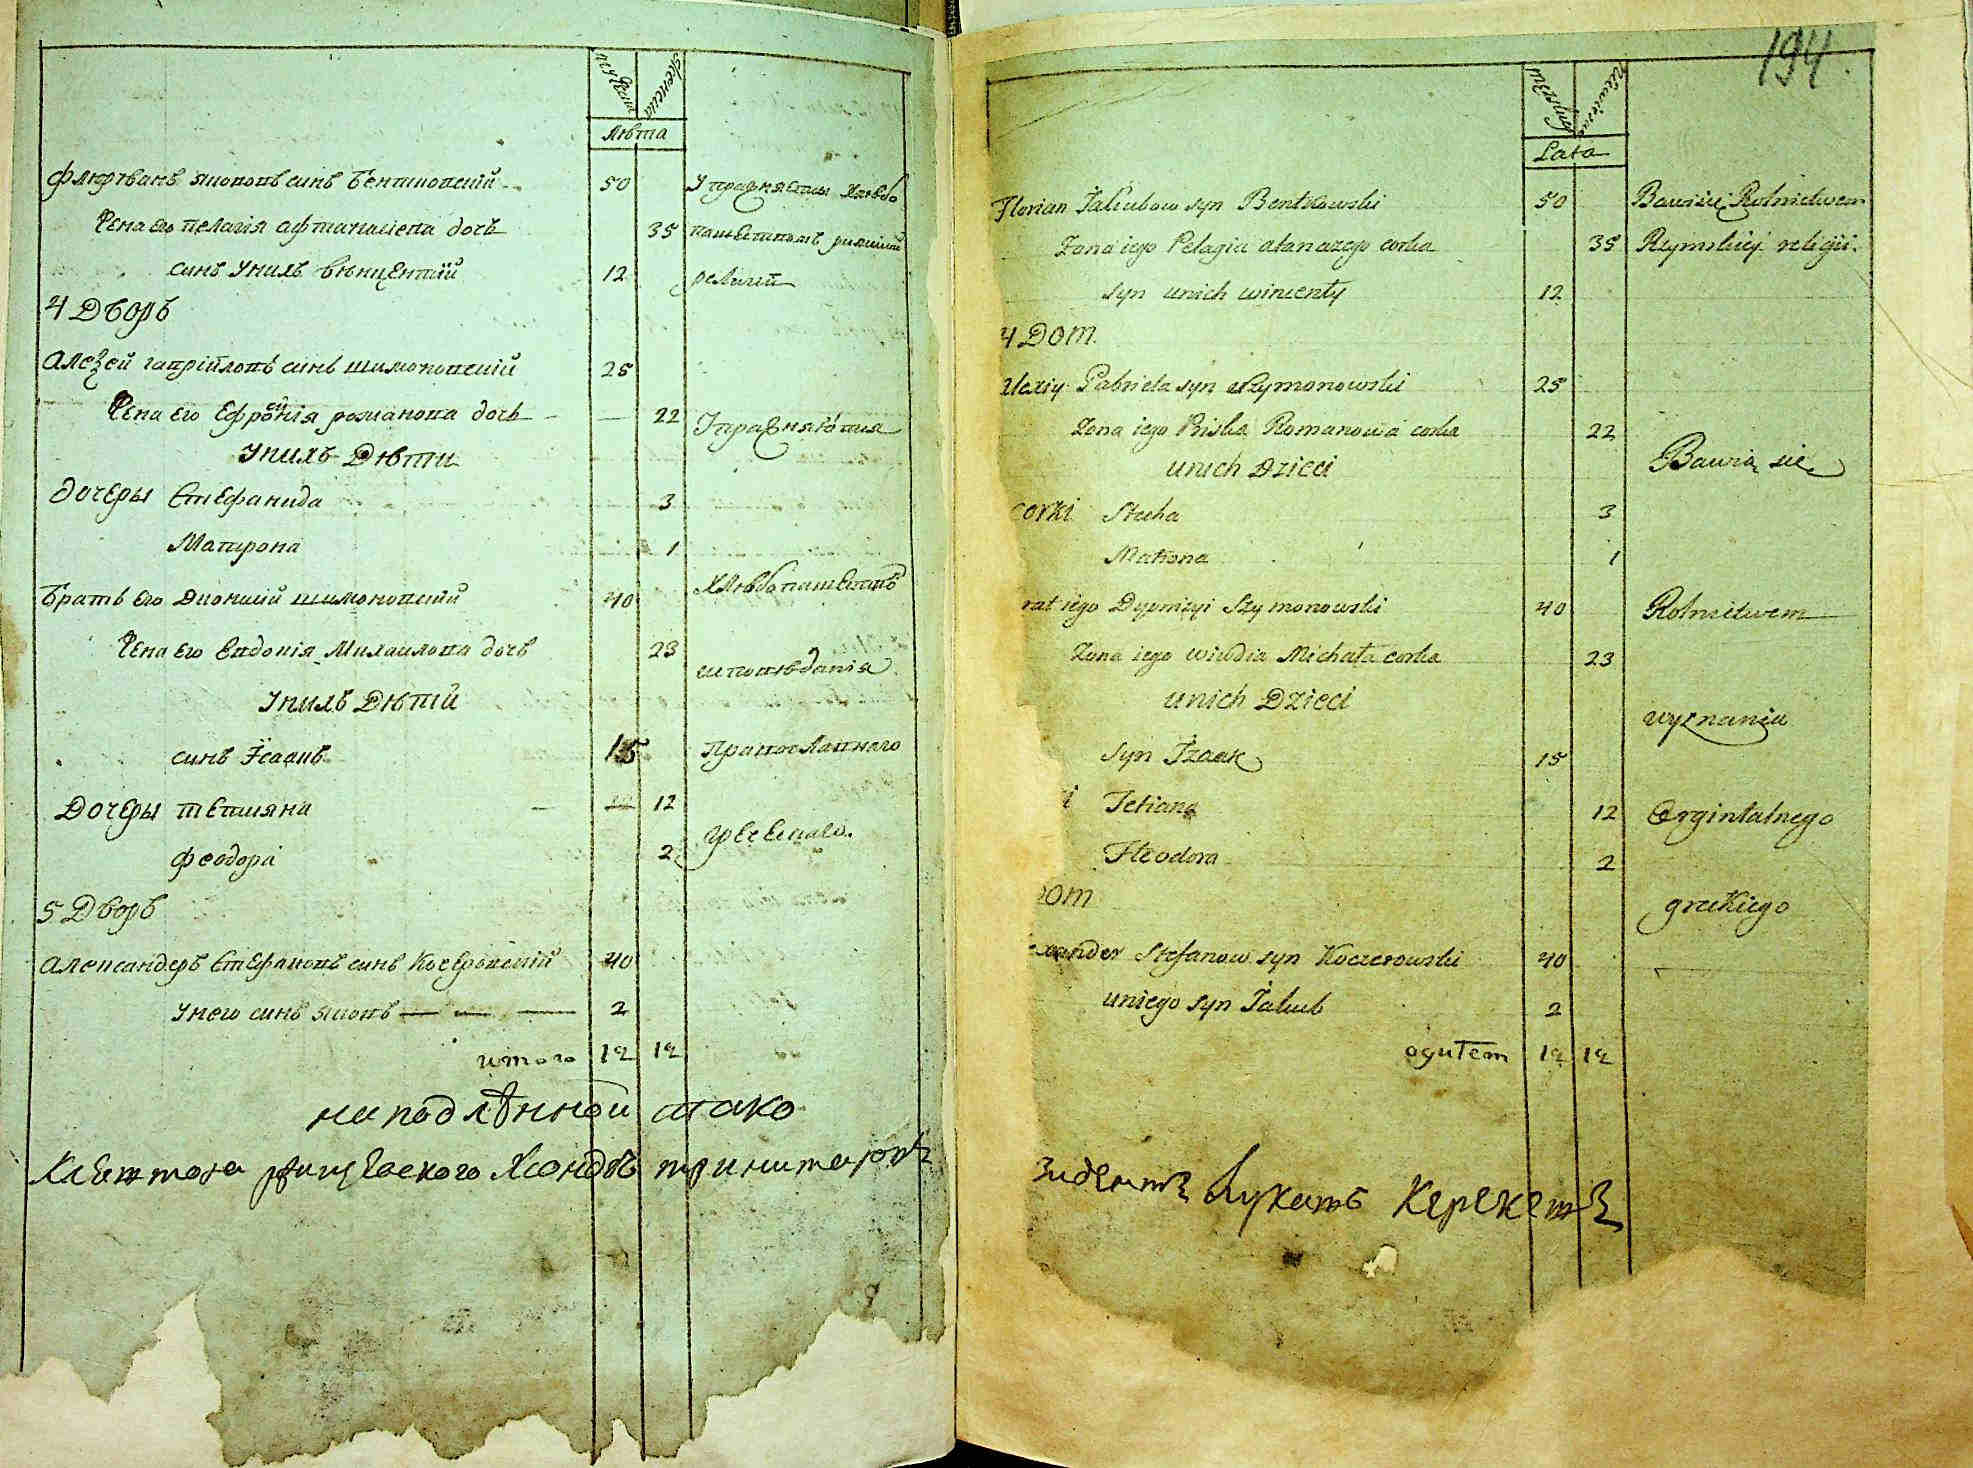 мужска женска
Лѣта
Флюриянъ якововъ синъ Бентковскій 50 Упражняется хлѣбо
жена его пелагія афтанасіева дочъ 35 пашествомъ римской
синъ Унихъ викцентій 12 религій
4 Дворъ
Алезей гаврійловъ синъ шимоновскій 25
жена его Ефросинія романова дочъ 22 Упражняются
Унихъ Дѣти
дочеры Стефанида 3
Матрона 1
Братъ его Дионисій шимоновскій 40 Хлѣбопашествомъ
жена его Евдокія Михаилова дочъ 23
исповѣданія
Унихъ Дѣтій
синъ Ісаакъ 15 Православнаго
Дочеры тетияна 12
греческаго.
феодора 2
5 Дворъ
Александеръ Стефановъ синъ Кочеровскій 40
Унего синъ яковъ 2
итого 12 12
на подлѣнной тако
Клештора ринского Ксендзъ тринитаровъ
194
męskiey niewiescie
Lata
Florian Jakubow syn Bentkowski 50 Bawisię Rolnictwem
Zona iego Pelagia atanazego corka 35 Rzymskiey religii.
syn unich wincenty 12
4 Dom.
alexiy Gabriela syn Szymonowski 25
Zona iego Priska Romanowa corka 22
unich Dzieci Bawią się
corki Steha 3
Matrona 1
rat iego Dyonizyi Szymonowski 40 Rolnictwem
Zona iego wiwdia Michała corka 23
unich Dzieci
wyznania
syn Izaak 15
i Tetiana 12 Orgintalnego
Fteodora 2
om
greckiego
exander Stefanow syn Koczerowski 40
uniego syn Jakub 2
ogułem 12 12
зидентъ Лукашъ Керекетъ